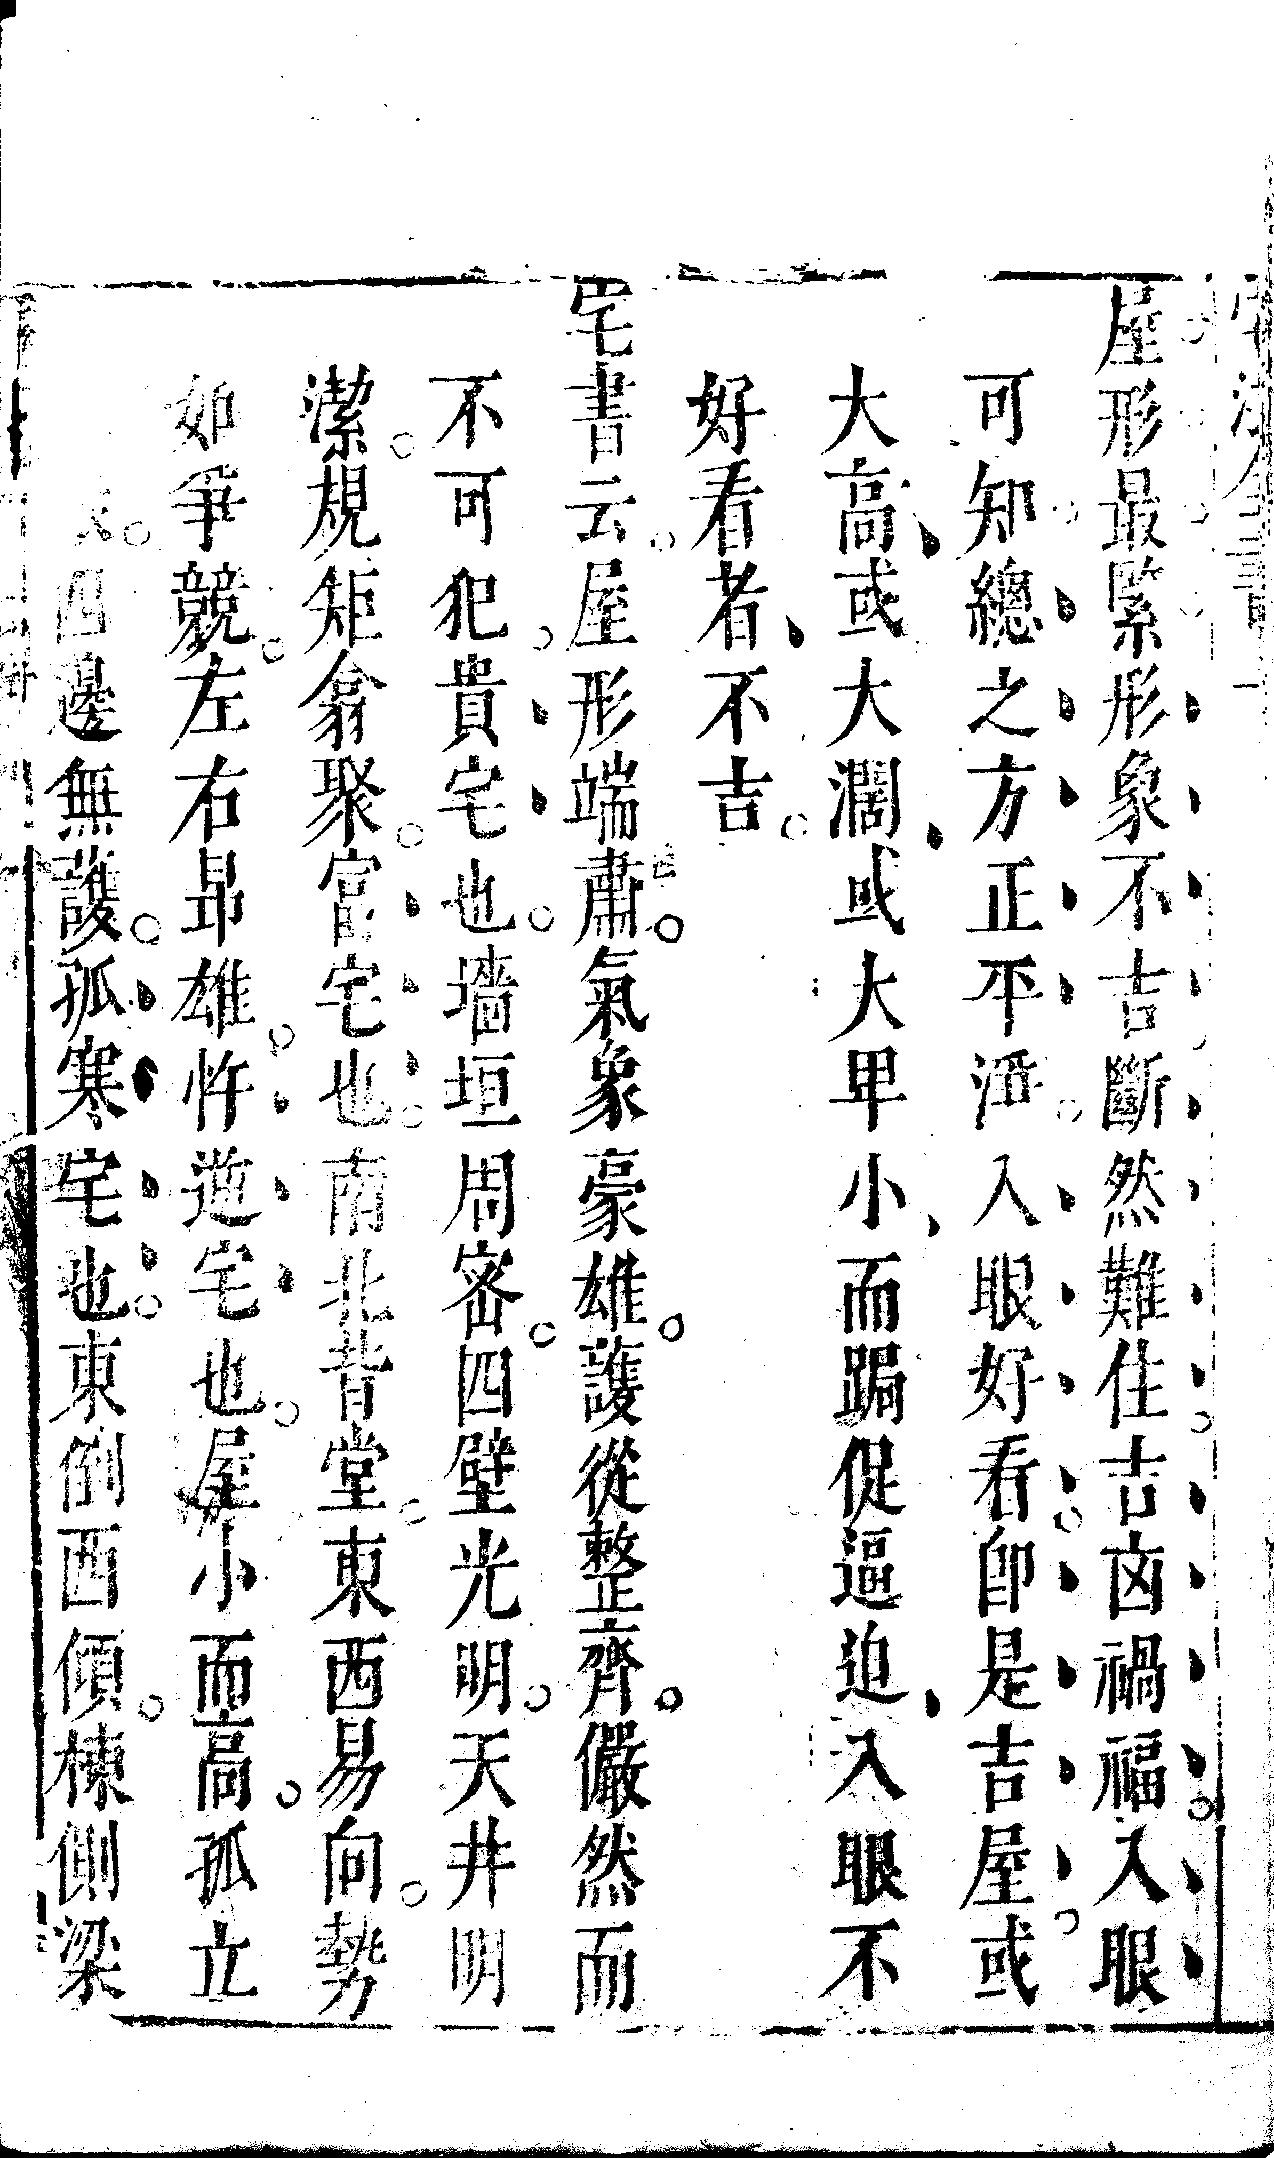 屋形最緊形象不吉斷然難住吉凶禍福入眼
可知總之方正平淨入眼好看卽是吉屋或
大高或大濶或大卑小而跼促逼迫入眼不
好看者不吉
宅書云屋形端肅氣象豪雄護從整齊儼然而
不可犯貴宅也墻垣周密四壁光明天井明
潔規矩翕聚富宅也南北皆堂東西易向勢
如爭競左右昻雄忤逆宅也屋小而高孤立
四邊無護孤寒宅也東倒西傾棟側梁